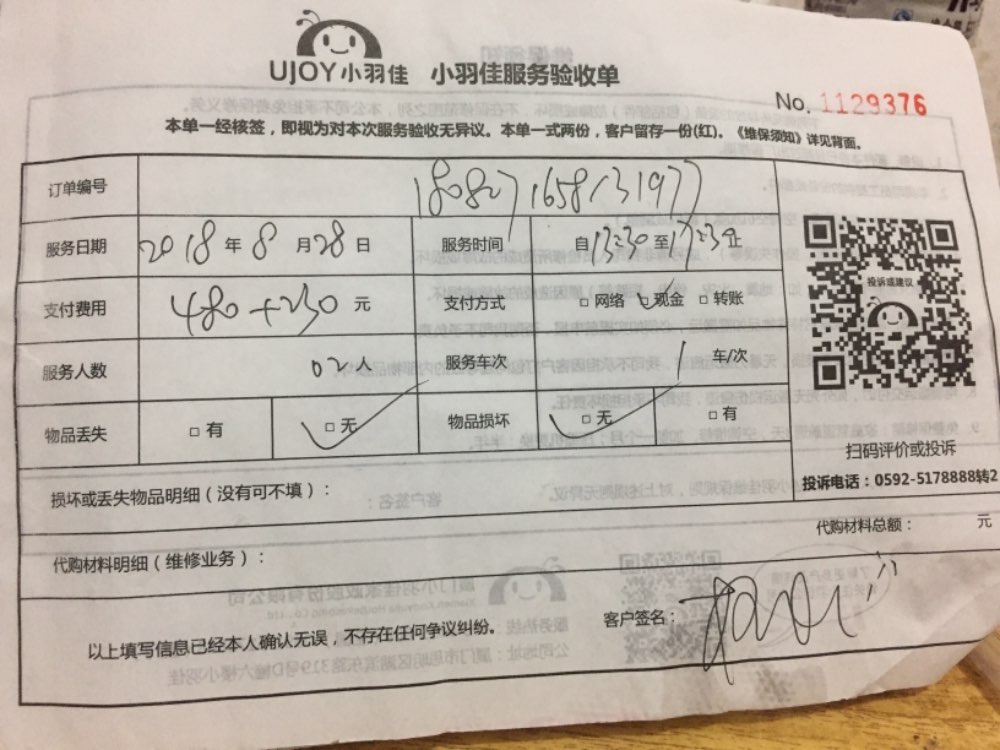 UJOY小羽佳 小羽佳服务验收单
No. 1129376
本单一经核签，即视为对本次服务验收无异议。本单一式两份，客户留存一份(红)。《维保须知》详见背面。
订单编号 180827165813197
服务日期 2018年8月28日 服务时间 自13:30至17:30止
支付费用 480+230 元 支付方式 □网络 □现金 □转账
服务人数 02人 服务车次 1 车/次
物品丢失 □有 □无 物品损坏 □无 □有
投诉或建议
扫码评价或投诉
投诉电话：0592-5178888转2
损坏或丢失物品明细（没有可不填）：
代购材料总额： 元
代购材料明细（维修业务）：
客户签名：
以上填写信息已经本人确认无误，不存在任何争议纠纷。